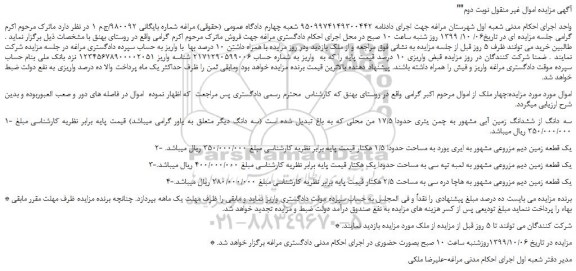 آگهی مزایده اموال غیر منقول نوبت دوم""
واحد اجرای احکام مدنی شعبه اول شهرستان مراغه جهت اجرای دادنامه 9509974149300442 شعبه چهارم دادگاه عمومی (حقوقی) مراغه شماره بایگانی 980092/ج م 1 در نظر دارد ماترک مرحوم اکرم
گرامی جلسه مزایده ای در تاریخ 1399/10/06 روز شنبه ساعت 10 صبح در محل اجرای احکام دادگستری مراغه جهت فروش ماترک مرحوم اکرم گرامی واقع در روستای یهنق با مشخصات ذیل برگزار نماید .
طالبین خرید می توانند ظرف 5 روز قبل از جلسه مزایده به نشانی فوق مراجعه و از ملک بازدید ودر روز مزایده با همراه داشتن 10 درصد بها با واریز به حساب سپرده دادگستری مراغه در جلسه مزایده شرکت
نمایند . ضمنا شرکت کنندگان در روز مزایده فیش واریزی 10 درصد قیمت پایه را که به واریز به شماره حساب 2171290599006 شناسه واریز 1234567890000051 نزد بانک ملی بنام حساب
سپرده موقت دادگستری مراغه واریز و فیش را همراه داشته باشند. پیشنهاد دهنده بالاترین قیمت برنده مزایده خواهد بود ومابقی ثمن را ظرف حداکثر یک ماه پرداخت والا ده درصد واریزی به نفع دولت ضبط
خواهد شد.
اموال مورد مزایده:چهار ملک از اموال مرحوم اکبر گرامی واقع در روستای یهنق که کارشناس محترم رسمی دادگستری پس مراجعت که اظهار نموده اموال در فاصله های دور و صعب العبوربوده و بدین
شرح ارزیابی میگردد.
سه دانگ از ششدانگ زمین آبی مشهور به چمن یئری حدودا 17/5 من محلی که به باغ تبدیل شده است (سه دانگ دیگر متعلق به یاور گرامی میباشد) قیمت پایه برابر نظریه کارشناسی مبلغ -1
350/000/000 ریال می باشد.
یک قطعه زمین دیم مزروعی مشهور به ایری یورد به مساحت حدودا 1/5 هکتار قیمت پایه برابر نظریه کارشناسی مبلغ 350/000/000 ریال میباشد. -2
یک قطعه زمین دیم مزروعی مشهور به لمبه تپه سی به مساحت حدودا یک هکتار قیمت پایه برابر نظریه کارشناسی مبلغ 400/000/000 ریال میباشد.-3
یک قطعه زمین دیم مزروعی مشهور به هاچا دره سی به مساحت 2/5 هکتار قیمت پایه برابر نظریه کارشناسی مبلغ 280/000/000 ریال میباشد.-4
برنده مزایده می بایست ده درصد مبلغ پیشنهادی را نقداً و فی المجلس به حساب سپرده موقت دادگستری واریز نماید و مابقی را ظرف مهلت یک ماهه بپردازد. چنانچه برنده مزایده ظرف مهلت مقرر مابقی *
بهاء را پرداخت ننماید مبلغ تودیعی پس از کسر هزینه های مزایده به نفع صندوق درآمد دولت ضبط و مزایده تجدید خواهد شد.
شرکت کنندگان می توانند تا 5 روز قبل از مزایده از ملک مورد مزایده بازدید نمایند. *
مزایده در تاریخ 1399/10/06روزشنبه ساعت 10 صبح بصورت حضوری در اجرای احکام مدنی دادگستری مراغه برگزار خواهد شد. *
مدیر دفتر شعبه اول اجرای احکام مدنی مراغه-علیرضا ملکی